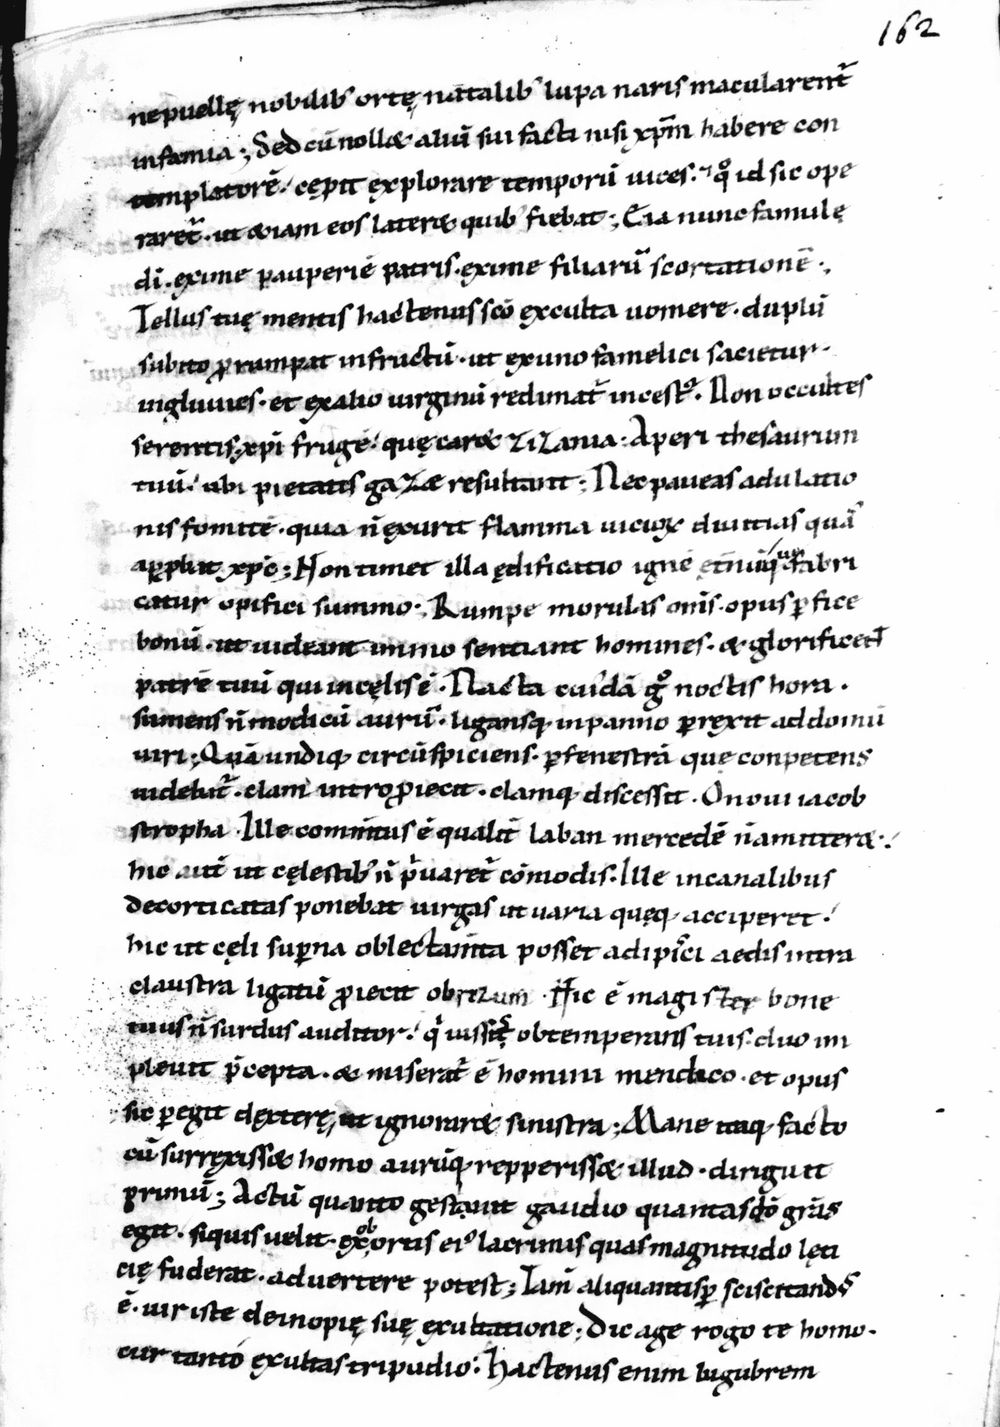 162
ne puellę nobilib' ortę natalib' lupanaris macularent᷑
infamia; Sed cū noll& aliū sui facti nisi xp̄m habere con
templatorē. cępit explorare temporū uices. qͦ id sic ope
raret᷑. ut & iam eos later& quib' fiebat; Eia nunc famulę
dī. exime pauperiē patris. exime filiarū scortationē.
Tellus tuę mentis hactenus sc̄o exculta uomere. duplū
subito ꝓrumpat in fructū. ut ex uno famelici sacietur
ingluuies. et ex alio uirginū redimat᷑ incest'. Non occultes
serentis xp̄i frugē. quę car& zizania. Aperi thesaurum
tuū. ubi pietatis gazæ resultant; Nec paueas adulatio
nis fomitē. quia n̄ exurit flamma
xp̄o; Non timet illa ędificatio ignē fabri
catur opifici summo. Rumpe morulas om̄s. opus ꝑfice
bonū. ut uideant immo sentiant homines. & glorificent
patrē tuū qui in cęlis ē. Nacta cuidā gͦ noctis hora.
sumens n̄ modicū aurū. ligansq; in panno ꝑrexit ad domū
uiri; Quā undiq; circūspiciens. ꝑ fenestrā que conpetens
uidebat᷑. clam intro ꝓiecit. clamq; discessit. O noui iacob
stropha. Ille comītus ē qualit̄ laban mercedē n̄ amitter&.
hic aut̄ ut cęlestib' n̄ p̄uaret᷑ cōmodis. Ille in canalibus
decorticatas ponebat uirgas ut uaria quęq; acciperet.
hic ut cęli suꝑna oblectam̄ta posset adipisci aedis intra
claustra ligatū ꝓiecit obrizum. Hic ē magister bone
tuus n̄ surdus auditor. qi iussis obtemperans tuis. duo im
pleuit p̄cepta. & miserat᷑ ē homini mendico. et opus
sic ꝑegit dextere, ut ignorar& sinistra; Mane itaq; facto
cū surrexiss& homo auriq; repperiss& illud. diriguit
primū; Actū quanto gestauit gaudio quantas dō grās
egit. siquis uelit. ex obortis ei' lacrimis quas magnitudo lęti
cię fuderat. aduertere potest; Iam aliquantisꝑ sciscitand'
ē. uir iste de inopię suę exultatione; Dic age rogo te homo.
cur tanto exultas tripudio. hactenus enim lugubrem